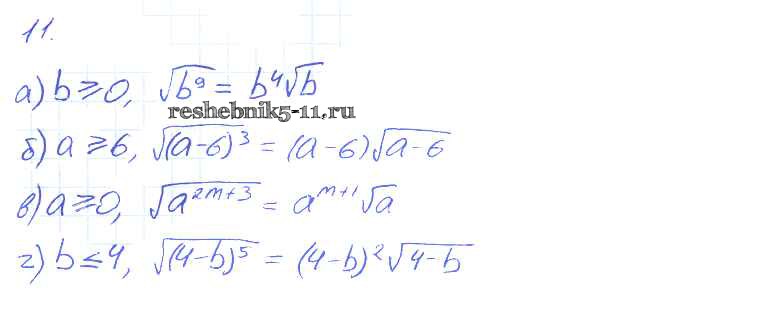 11.
а) b ⩾ 0, √(b⁹) = b⁴√b
reshebnik5-11.ru
б) a ⩾ 6, √((a-6)³) = (a-6)√(a-6)
в) a ⩾ 0, √(a²ᵐ⁺³) = aᵐ⁺¹√a
г) b ≤ 4, √((4-b)⁵) = (4-b)²√(4-b)